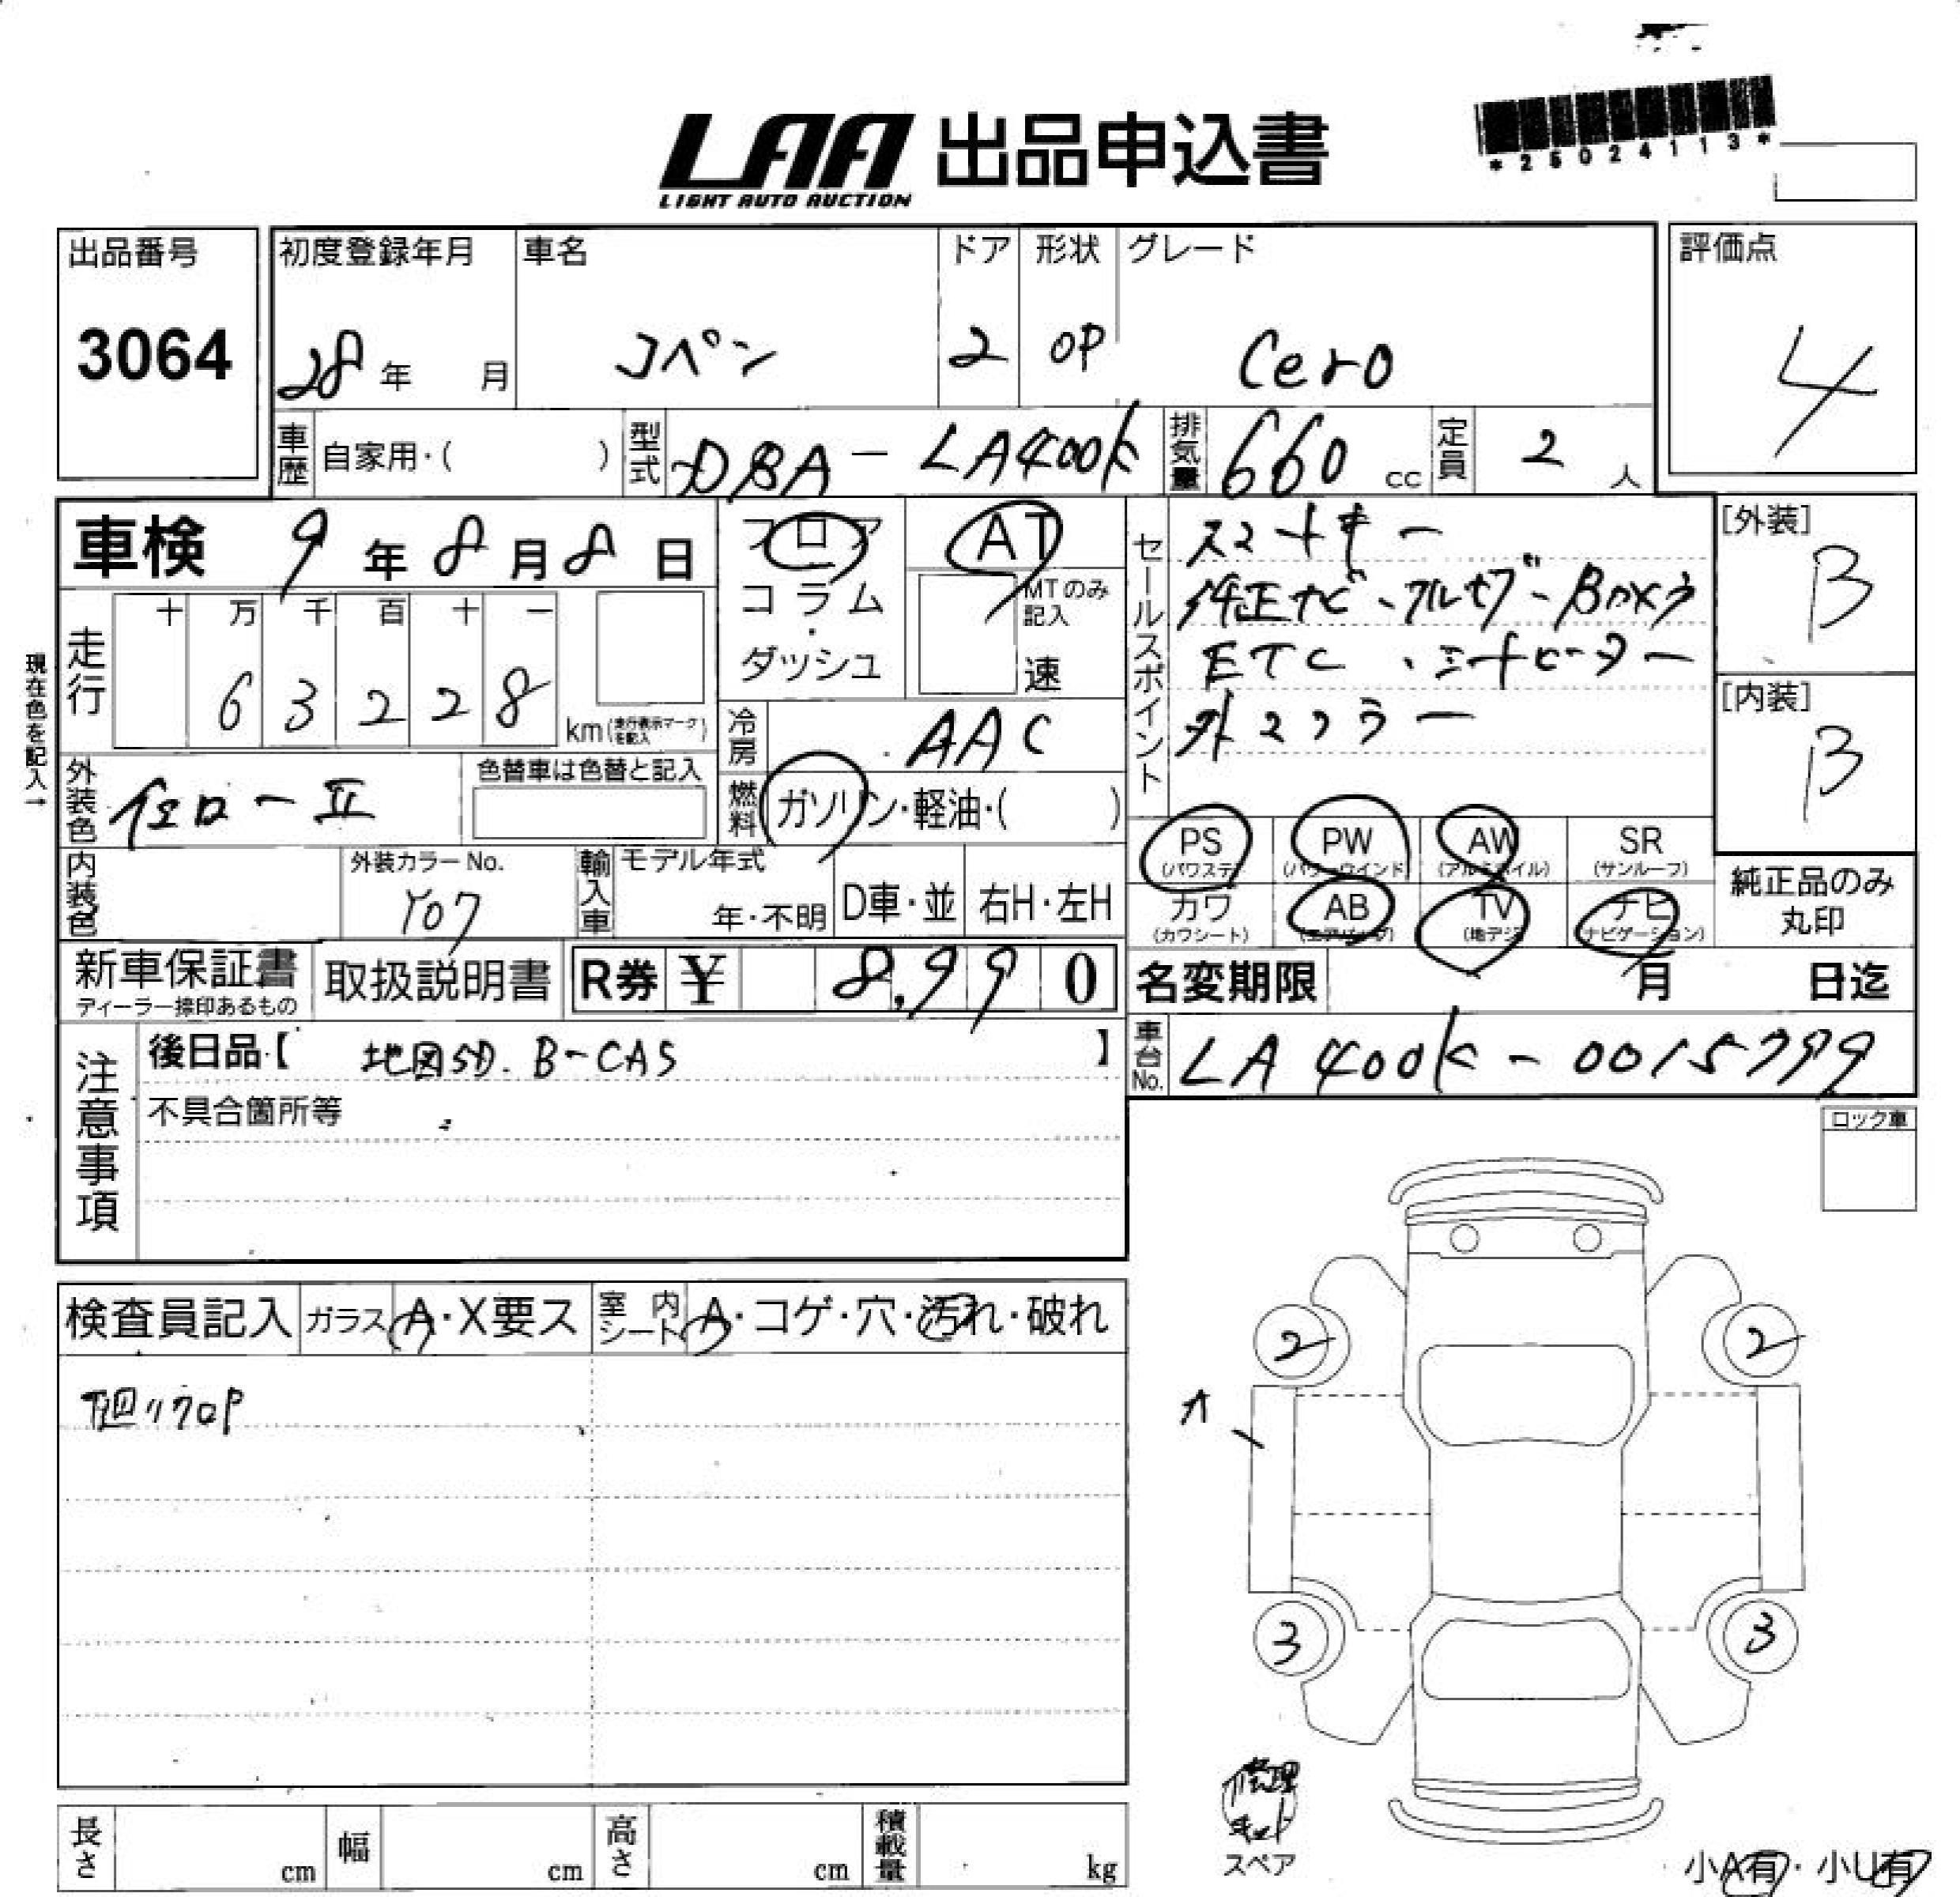 LAA 出品申込書
LIGHT AUTO AUCTION
*25024113*
出品番号
3064
初度登録年月
28年 月
車名
コペン
ドア
2
形状
OP
グレード
Cero
評価点
4
車歴 自家用・( )
型式 DBA-LA400K
排気量 660 cc
定員 2 人
車検 9年8月8日
フロア・コラム・ダッシュ
AT
MTのみ記入
速
セールスポイント
スマートキー
純正ナビ、フルセグ
ETC、シートヒーター
[外装]
B
[内装]
B
現在色を記入→
走行
十 万 千 百 十 一
6 3 2 2 8
km(走行表示マークを記入)
冷房 AAC
燃料 ガソリン・軽油・( )
外装色 イエローII
色替車は色替と記入
内装色
外装カラーNo.
Y07
輸入車 モデル年式
年・不明
D車・並
右H・左H
PS
(パワステ)
PW
(パワーウインド)
AW
(アルミホイル)
SR
(サンルーフ)
カワ
(カワシート)
AB
(エアバッグ)
TV
(地デジ)
ナビ
(ナビゲーション)
純正品のみ
丸印
新車保証書
ディーラー捺印あるもの
取扱説明書
R券 ¥ 8,990
名変期限 月 日迄
車台No. LA400K-0015799
注意事項
後日品【 地図SD. B-CAS 】
不具合箇所等
ロック車
検査員記入
ガラス A・X要ス
室内シート A・コゲ・穴・汚れ・破れ
下廻リ
A
2
2
3
3
修理
キット
スペア
長さ cm
幅 cm
高さ cm
積載量 kg
小A有・小U有